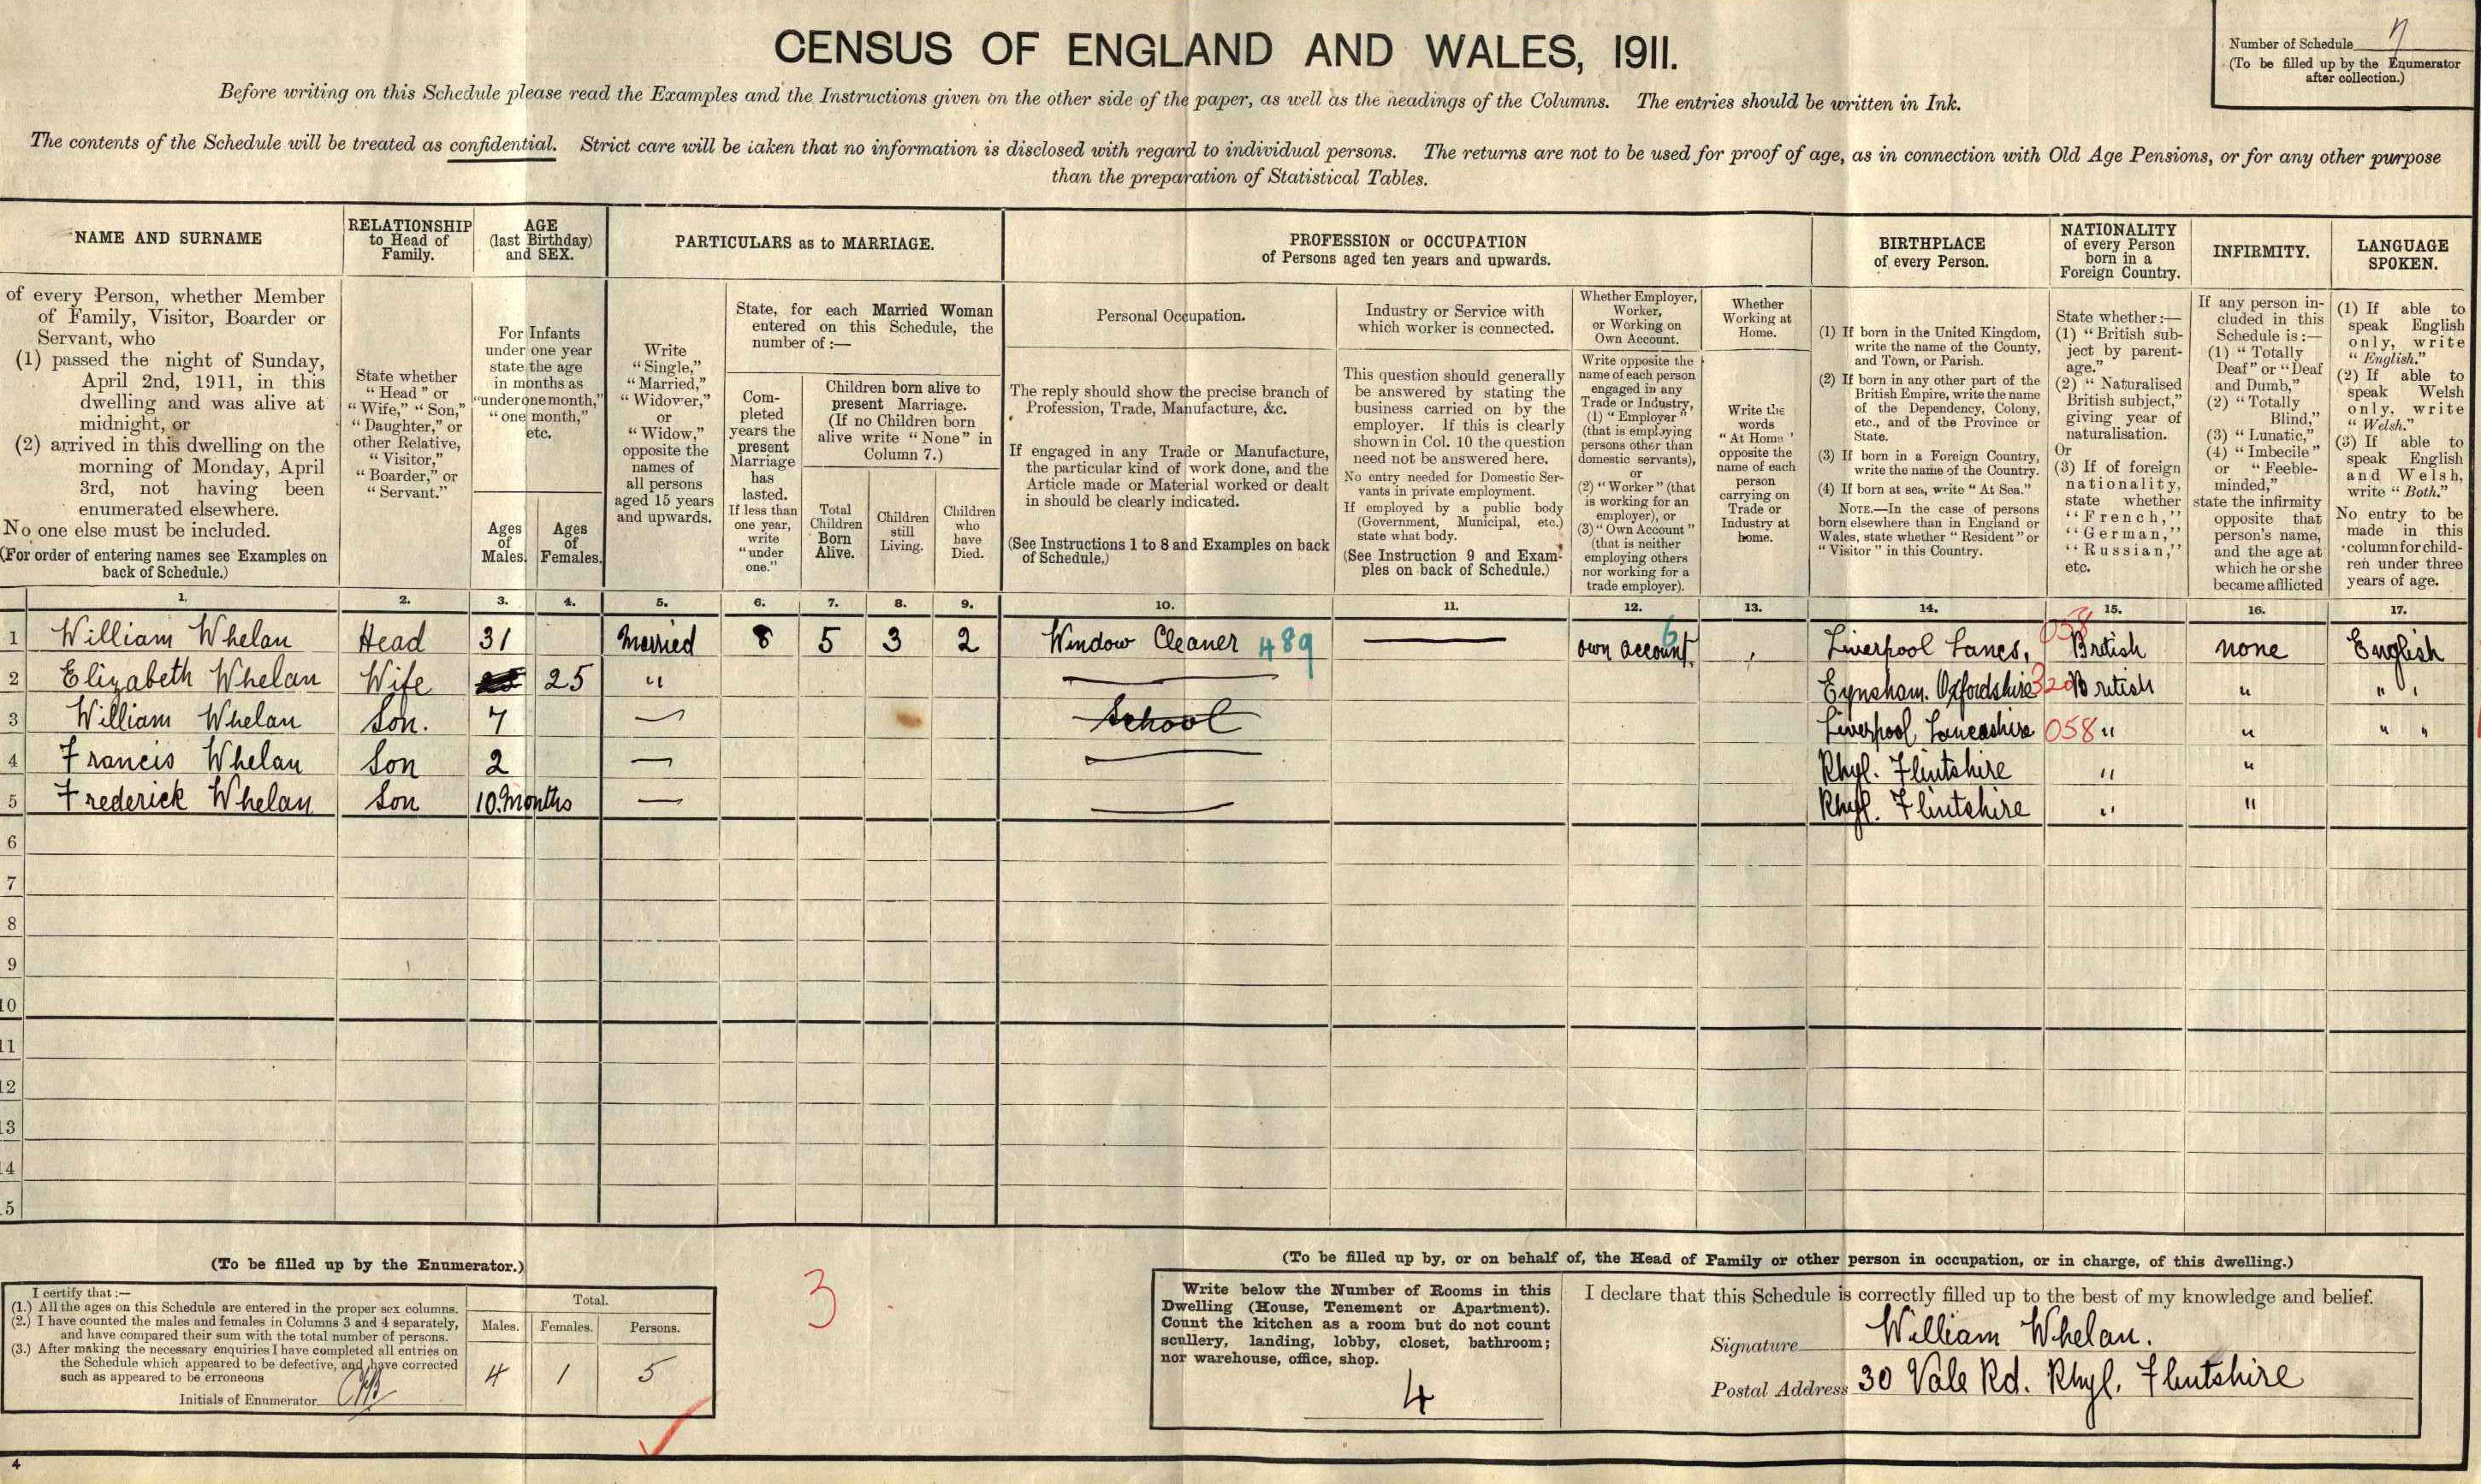 CENSUS OF ENGLAND AND WALES, 1911.
Number of Schedule
(To be filled up by the Enumerator
after collection.)
Before writing on this Schedule please read the Examples and the Instructions given on the other side of the paper, as well as the headings of the Columns. The entries should be written in Ink.
The contents of the Schedule will be treated as confidential. Strict care will be taken that no information is disclosed with regard to individual persons. The returns are not to be used for proof of age, as in connection with Old Age Pensions, or for any other purpose
than the preparation of Statistical Tables.
NAME AND SURNAME
RELATIONSHIP
to Head of
Family.
AGE
(last Birthday)
and SEX.
PARTICULARS as to MARRIAGE.
PROFESSION or OCCUPATION
of Persons aged ten years and upwards.
BIRTHPLACE
of every Person.
NATIONALITY
of every Person
born in a
Foreign Country.
INFIRMITY.
LANGUAGE
SPOKEN.
of every Person, whether Member
of Family, Visitor, Boarder or
Servant, who
(1) passed the night of Sunday,
April 2nd, 1911, in this
dwelling and was alive at
midnight, or
(2) arrived in this dwelling on the
morning of Monday, April
3rd, not having been
enumerated elsewhere.
No one else must be included.
(For order of entering names see Examples on
back of Schedule.)
State whether
"Head" or
"Wife," "Son,"
"Daughter," or
other Relative,
"Visitor,"
"Boarder," or
"Servant."
For Infants
under one year
state the age
in months as
"under one month,"
"one month,"
etc.
Ages
of
Males.
Ages
of
Females.
Write
"Single,"
"Married,"
"Widower,"
or
"Widow,"
opposite the
names of
all persons
aged 15 years
and upwards.
State, for each Married Woman
entered on this Schedule, the
number of :—
Com-
pleted
years the
present
Marriage
has
lasted.
If less than
one year,
write
"under
one."
Children born alive to
present Marriage.
(If no Children born
alive write "None" in
Column 7.)
Total
Children
Born
Alive.
Children
still
Living.
Children
who
have
Died.
Personal Occupation.
The reply should show the precise branch of
Profession, Trade, Manufacture, &c.
If engaged in any Trade or Manufacture,
the particular kind of work done, and the
Article made or Material worked or dealt
in should be clearly indicated.
(See Instructions 1 to 8 and Examples on back
of Schedule.)
Industry or Service with
which worker is connected.
This question should generally
be answered by stating the
business carried on by the
employer. If this is clearly
shown in Col. 10 the question
need not be answered here.
No entry needed for Domestic Ser-
vants in private employment.
If employed by a public body
(Government, Municipal, etc.)
state what body.
(See Instruction 9 and Exam-
ples on back of Schedule.)
Whether Employer,
Worker,
or Working on
Own Account.
Write opposite the
name of each person
engaged in any
Trade or Industry,
(1) "Employer"
(that is employing
persons other than
domestic servants),
or
(2) "Worker" (that
is working for an
employer), or
(3) "Own Account"
(that is neither
employing others
nor working for a
trade employer).
Whether
Working at
Home.
Write the
words
"At Home"
opposite the
name of each
person
carrying on
Trade or
Industry at
home.
(1) If born in the United Kingdom,
write the name of the County,
and Town, or Parish.
(2) If born in any other part of the
British Empire, write the name
of the Dependency, Colony,
etc., and of the Province or
State.
(3) If born in a Foreign Country,
write the name of the Country.
(4) If born at sea, write "At Sea."
NOTE.—In the case of persons
born elsewhere than in England or
Wales, state whether "Resident" or
"Visitor" in this Country.
State whether :—
(1) "British sub-
ject by parent-
age."
(2) "Naturalised
British subject,"
giving year of
naturalisation.
Or
(3) If of foreign
nationality,
state whether
"French,"
"German,"
"Russian,"
etc.
If any person in-
cluded in this
Schedule is :—
(1) "Totally
Deaf" or "Deaf
and Dumb,"
(2) "Totally
Blind,"
(3) "Lunatic,"
(4) "Imbecile"
or "Feeble-
minded,"
state the infirmity
opposite that
person's name,
and the age at
which he or she
became afflicted
(1) If able to
speak English
only, write
"English."
(2) If able to
speak Welsh
only, write
"Welsh."
(3) If able to
speak English
and Welsh,
write "Both."
No entry to be
made in this
column for child-
ren under three
years of age.
1. 2. 3. 4. 5. 6. 7. 8. 9. 10. 11. 12. 13. 14. 15. 16. 17.
1 William Whelan Head 31 Married 8 5 3 2 Window Cleaner 489 own account 6 Liverpool Lancs, 058 British none English
2 Elizabeth Whelan Wife 25 " Eynsham. Oxfordshire 320 British " "
3 William Whelan Son. 7 — School Liverpool Lancashire 058 " " " "
4 Francis Whelan Son 2 — Rhyl. Flintshire " "
5 Frederick Whelan Son 10. Months — Rhyl. Flintshire " "
6
7
8
9
10
11
12
13
14
15
(To be filled up by the Enumerator.)
I certify that :—
(1.) All the ages on this Schedule are entered in the proper sex columns.
(2.) I have counted the males and females in Columns 3 and 4 separately,
and have compared their sum with the total number of persons.
(3.) After making the necessary enquiries I have completed all entries on
the Schedule which appeared to be defective, and have corrected
such as appeared to be erroneous
Initials of Enumerator
Total.
Males. Females. Persons.
4 1 5
3
(To be filled up by, or on behalf of, the Head of Family or other person in occupation, or in charge, of this dwelling.)
Write below the Number of Rooms in this
Dwelling (House, Tenement or Apartment).
Count the kitchen as a room but do not count
scullery, landing, lobby, closet, bathroom;
nor warehouse, office, shop.
4
I declare that this Schedule is correctly filled up to the best of my knowledge and belief.
Signature William Whelan.
Postal Address 30 Vale Rd. Rhyl. Flintshire
4